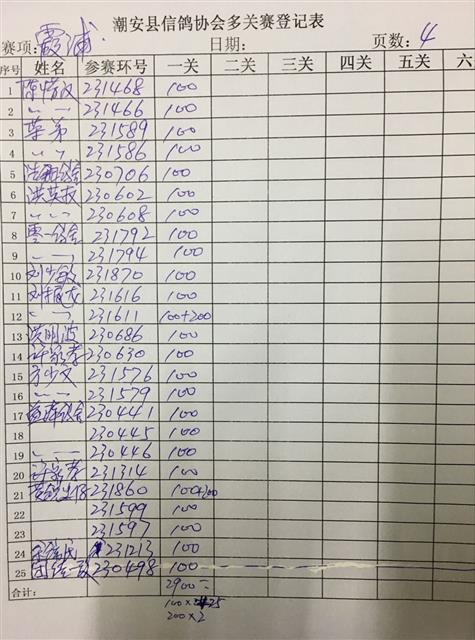 潮安县信鸽协会多关赛登记表
赛项: 霞浦 日期: 页数: 4
序号 姓名 参赛环号 一关 二关 三关 四关 五关 六
1 231468 100
2 〃 〃 231466 100
3 蔡弟 231589 100
4 〃 〃 231586 100
5 230706 100
6 洪英 230602 100
7 〃 〃 230608 100
8 231792 100
9 〃 〃 231794 100
10 刘少敏 231870 100
11 231616 100
12 〃 〃 231611 100+200
13 洪明波 230686 100
14 许家孝 230630 100
15 方少文 231576 100
16 〃 〃 231579 100
17 230441 100
18 230445 100
19 〃 〃 230446 100
20 许家孝 231314 100
21 231860 100+200
22 231599 100
23 231597 100
24 231213 100
25 团结一致 230498 100
合计: 2900
100× 25
200×2